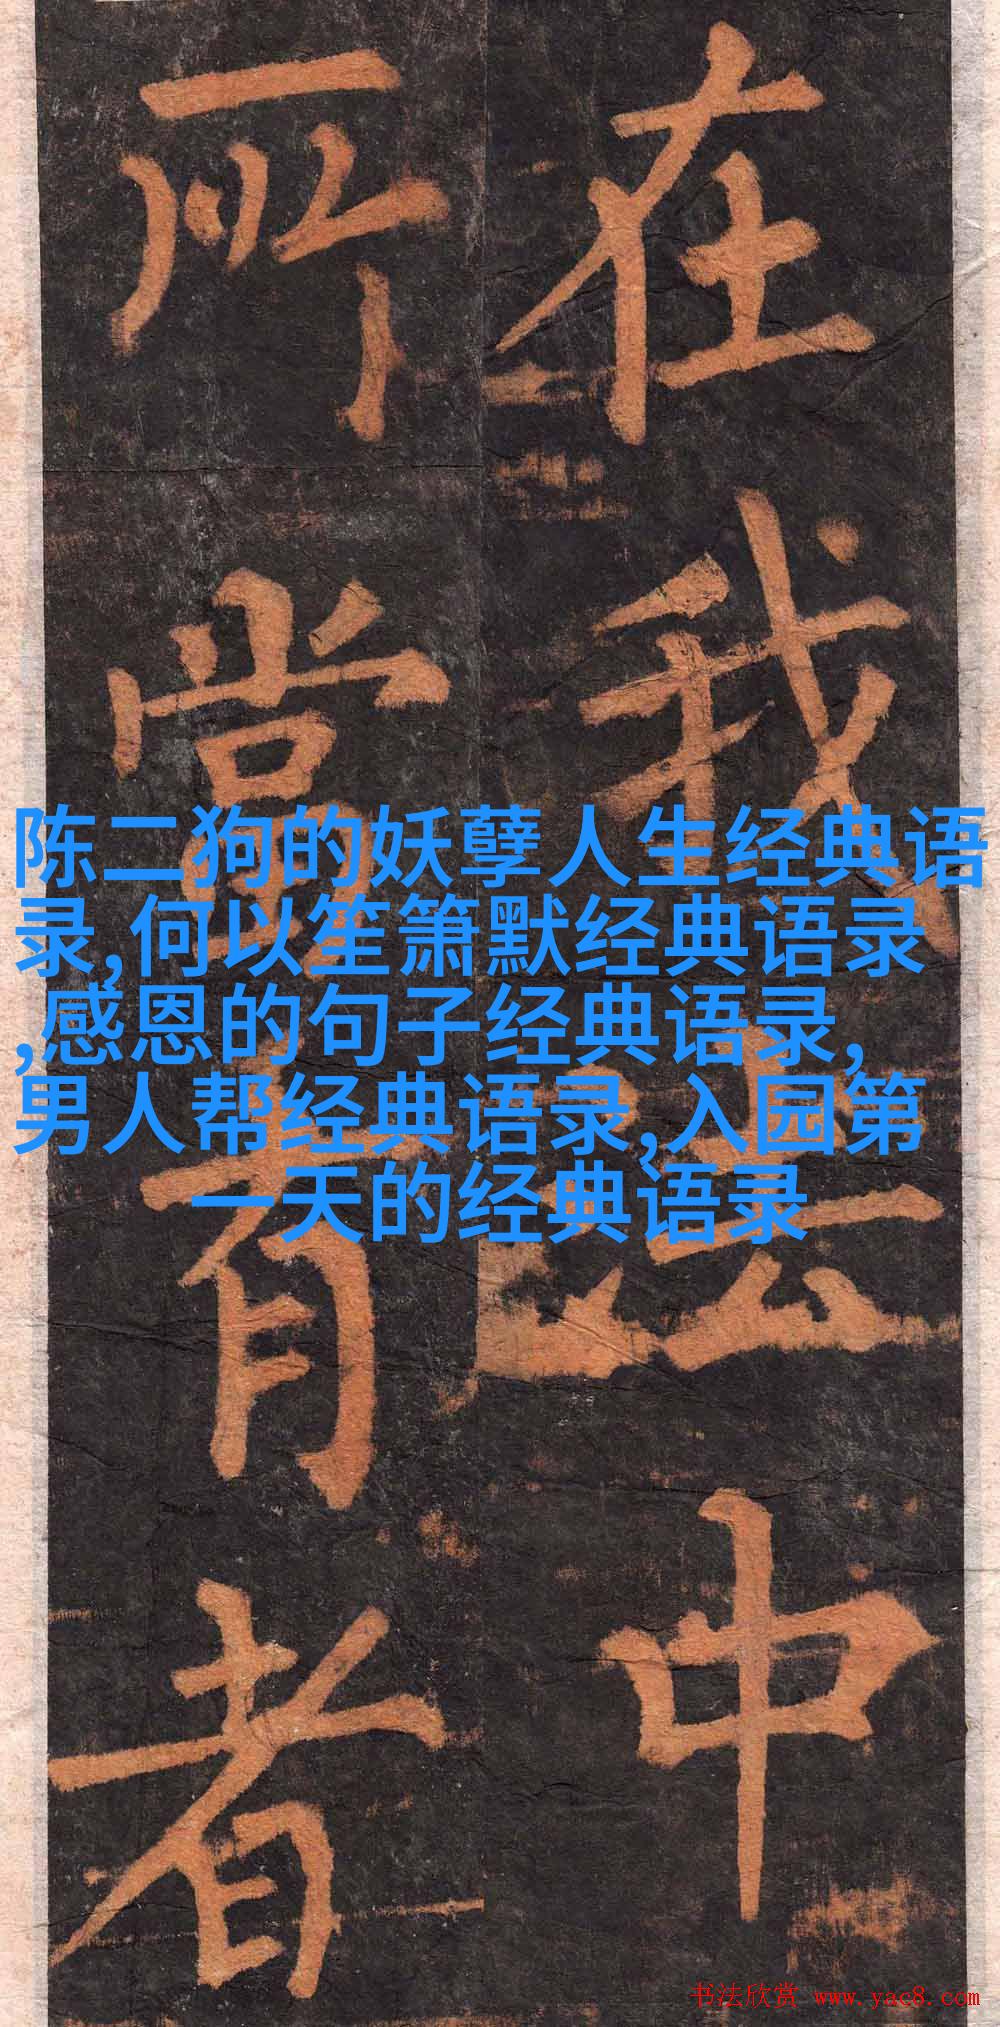 在我法中
所當有者
陈二狗的妖孽人生经典语
录,何以笙箫默经典语录
,感恩的句子经典语录,
男人帮经典语录,入园第
一天的经典语录
书法欣赏 www.yac8.com